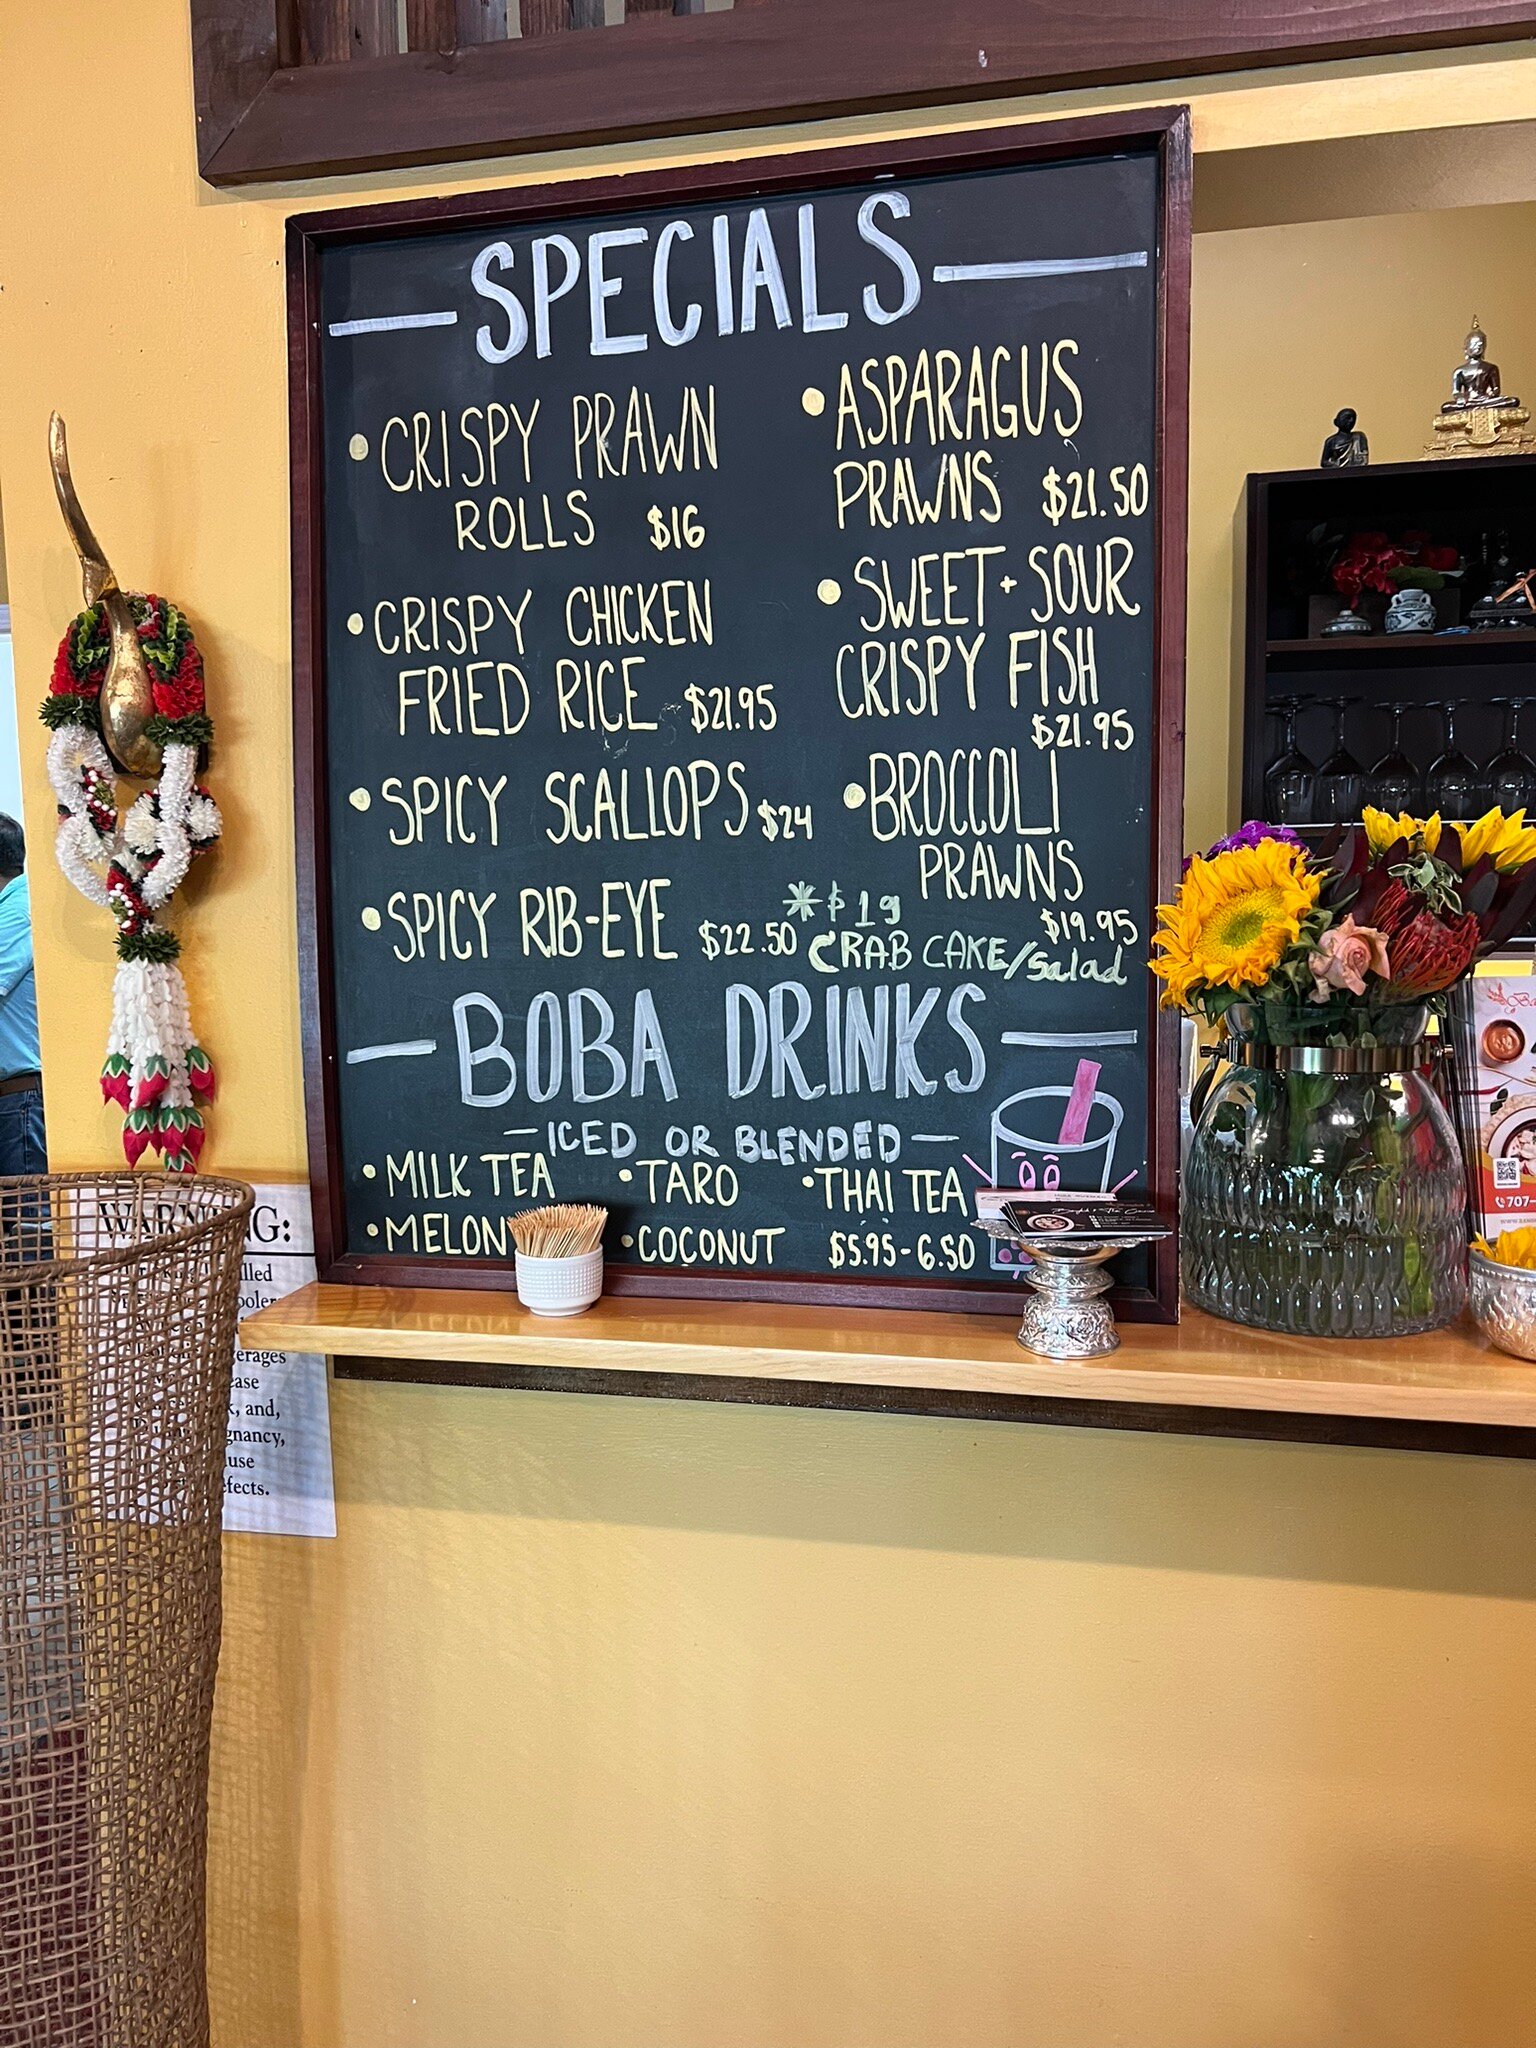 SPECIALS
• CRISPY PRAWN
ROLLS $16
• CRISPY CHICKEN
FRIED RICE $21.95
• SPICY SCALLOPS $24
• SPICY RIB-EYE $22.50
• ASPARAGUS
PRAWNS $21.50
• SWEET + SOUR
CRISPY FISH
$21.95
• BROCCOLI
PRAWNS
$19.95
* $19
CRAB CAKE/Salad
BOBA DRINKS
- ICED OR BLENDED -
• MILK TEA • TARO • THAI TEA
• MELON • COCONUT $5.95-6.50
WARNING:
and,
707-